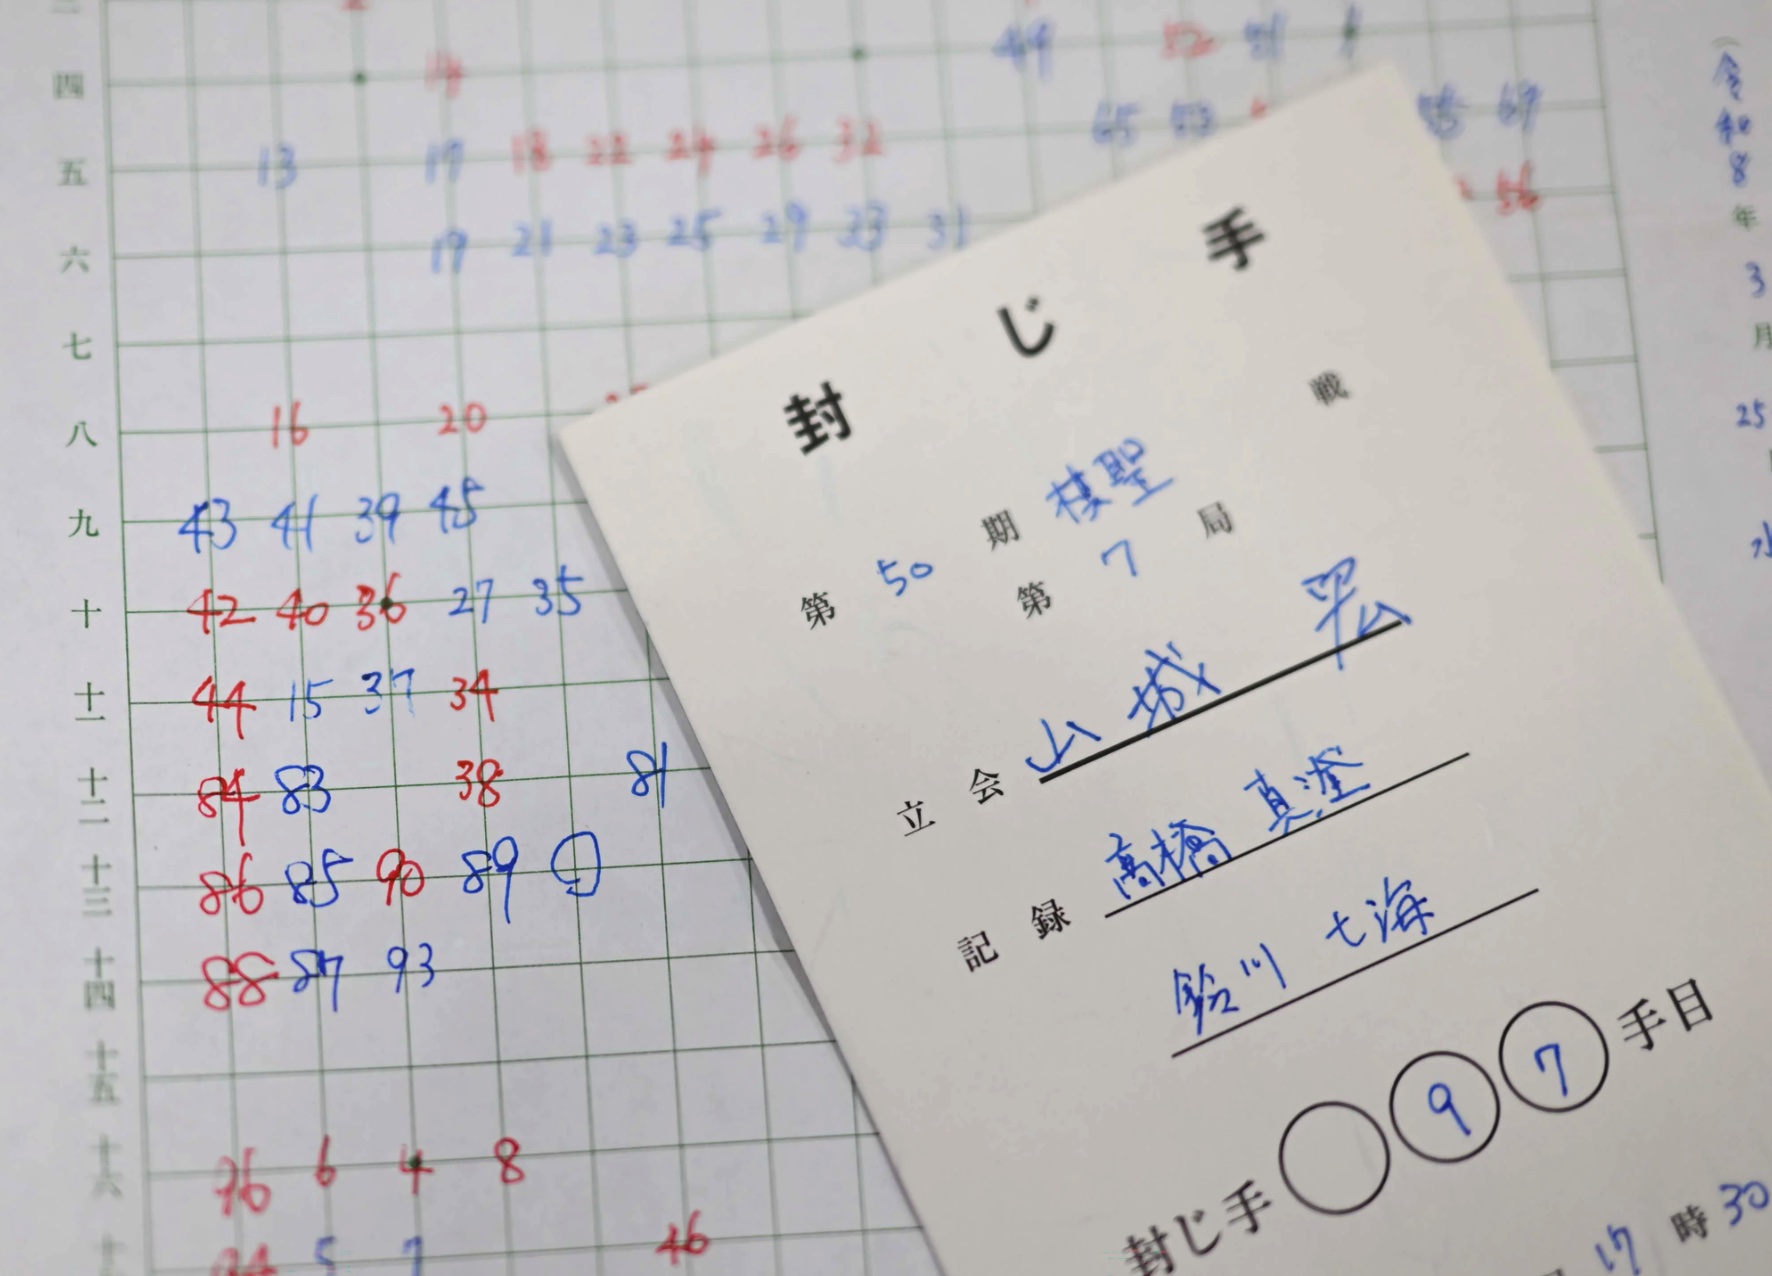 四 14 49 52 51
五 13 17 18 22 24 26 32 65 53 55 67
六 19 21 23 25 29 33 31 56
七
八 16 20
九 43 41 39 45
十 42 40 36 27 35
十一 44 15 37 34
十二 84 83 38 81
十三 86 85 90 89
十四 88 87 93
十五
十六 96 6 4 8
5 7 46
令和8年
3月
25
水
封じ手
第50期棋聖戦
第7局
立会 山城 宏
記録 高橋 真澄
鈴川 七海
封じ手 97手目
17時30